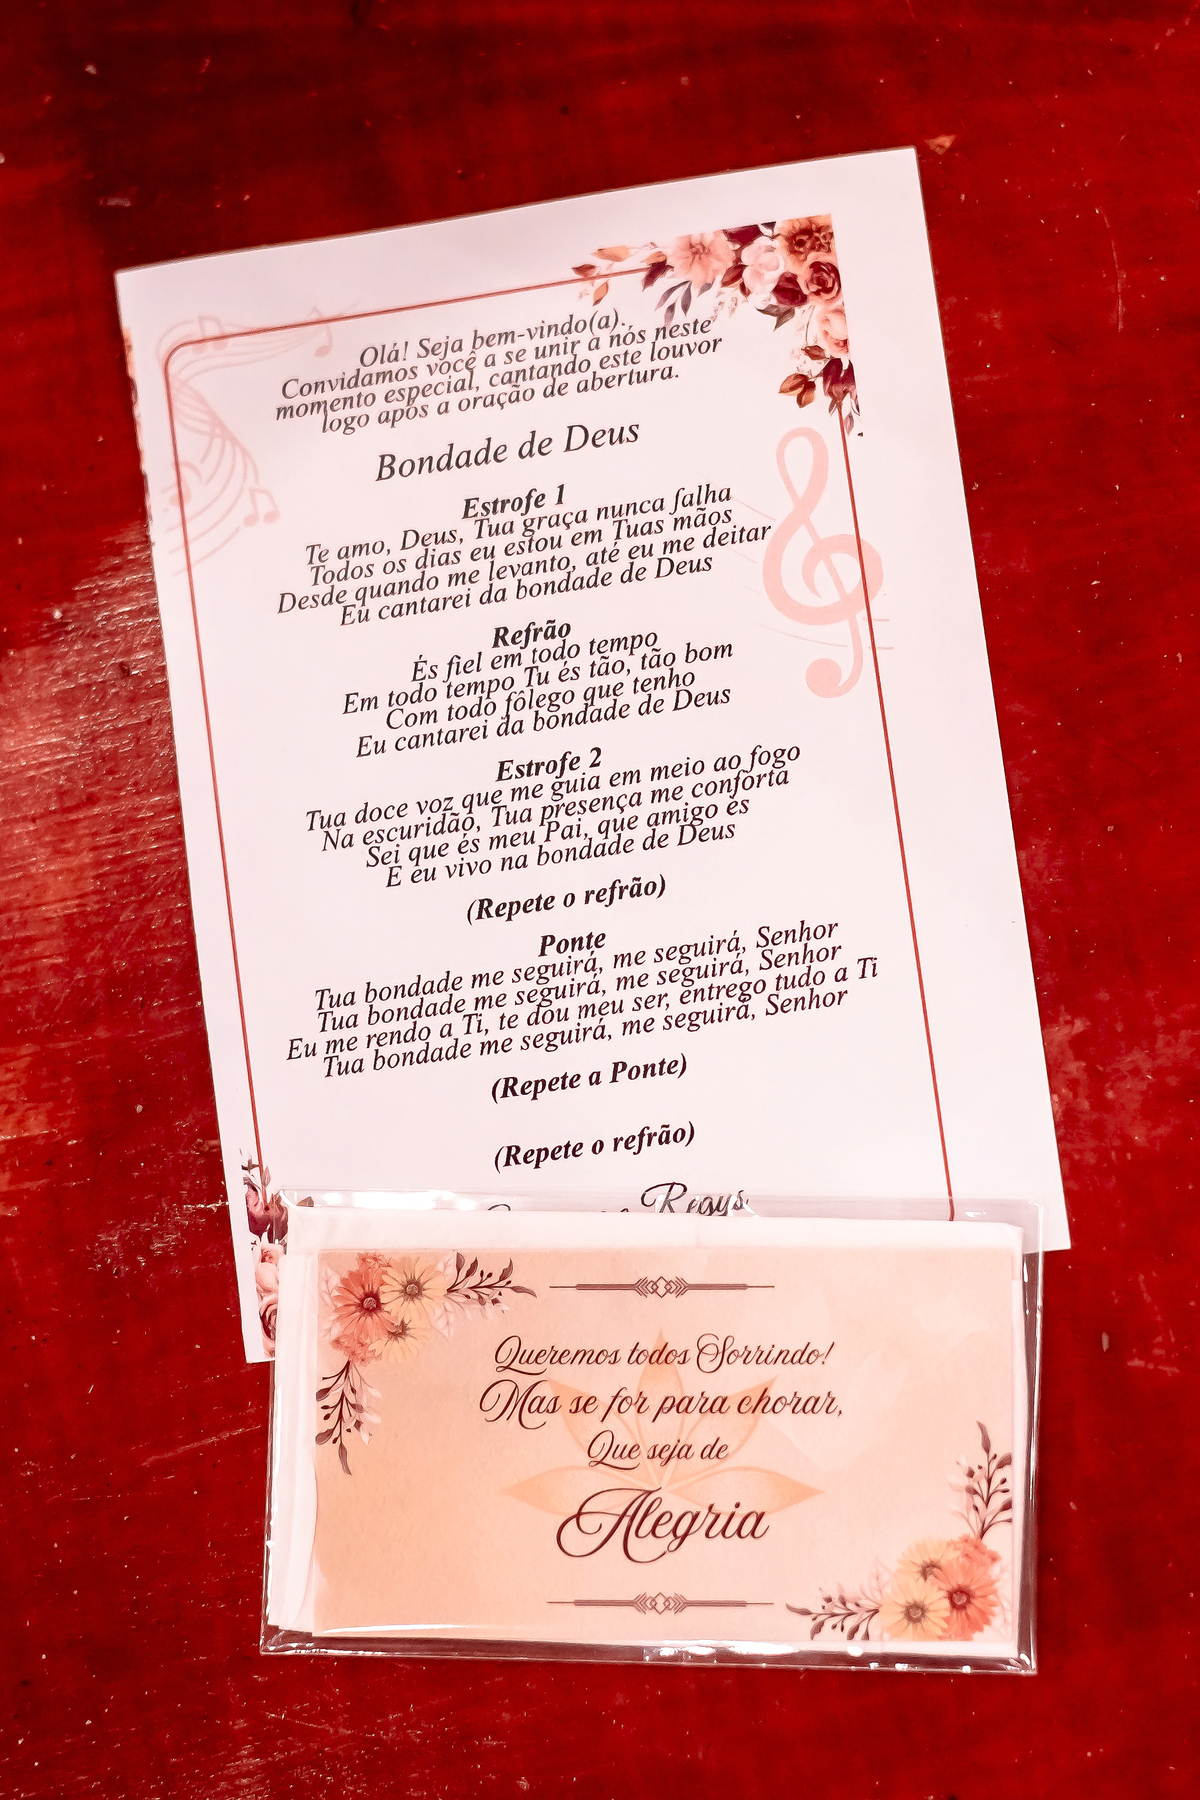 Olá! Seja bem-vindo(a).
Convidamos você a se unir a nós neste
momento especial, cantando este louvor
logo após a oração de abertura.
Bondade de Deus
Estrofe 1
Te amo, Deus, Tua graça nunca falha
Todos os dias eu estou em Tuas mãos
Desde quando me levanto, até eu me deitar
Eu cantarei da bondade de Deus
Refrão
És fiel em todo tempo
Em todo tempo Tu és tão, tão bom
Com todo fôlego que tenho
Eu cantarei da bondade de Deus
Estrofe 2
Tua doce voz que me guia em meio ao fogo
Na escuridão, Tua presença me conforta
Sei que és meu Pai, que amigo és
E eu vivo na bondade de Deus
(Repete o refrão)
Ponte
Tua bondade me seguirá, me seguirá, Senhor
Tua bondade me seguirá, me seguirá, Senhor
Eu me rendo a Ti, te dou meu ser, entrego tudo a Ti
Tua bondade me seguirá, me seguirá, Senhor
(Repete a Ponte)
(Repete o refrão)
Regys
Queremos todos Sorrindo!
Mas se for para chorar,
Que seja de
Alegria